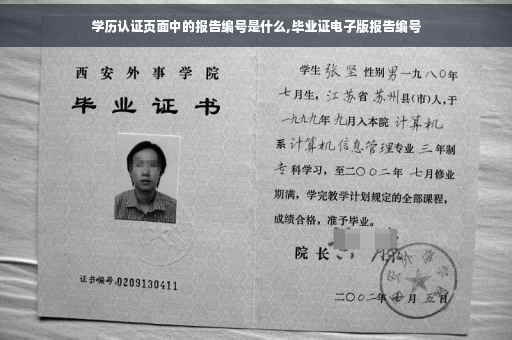 学历认证页面中的报告编号是什么,毕业证电子版报告编号
西安外事学院
毕业证书
证书编号:0209130411
学生 张坚 性别 男 一九八〇年
七月生, 江苏省 苏州县(市)人,于
一九九九年 九月入本院 计算机
系 计算机信息管理专业 三 年制
专科学习,至二〇〇二年 七月修业
期满,学完教学计划规定的全部课程,
成绩合格,准予毕业。
院长
二〇〇二年 月五日